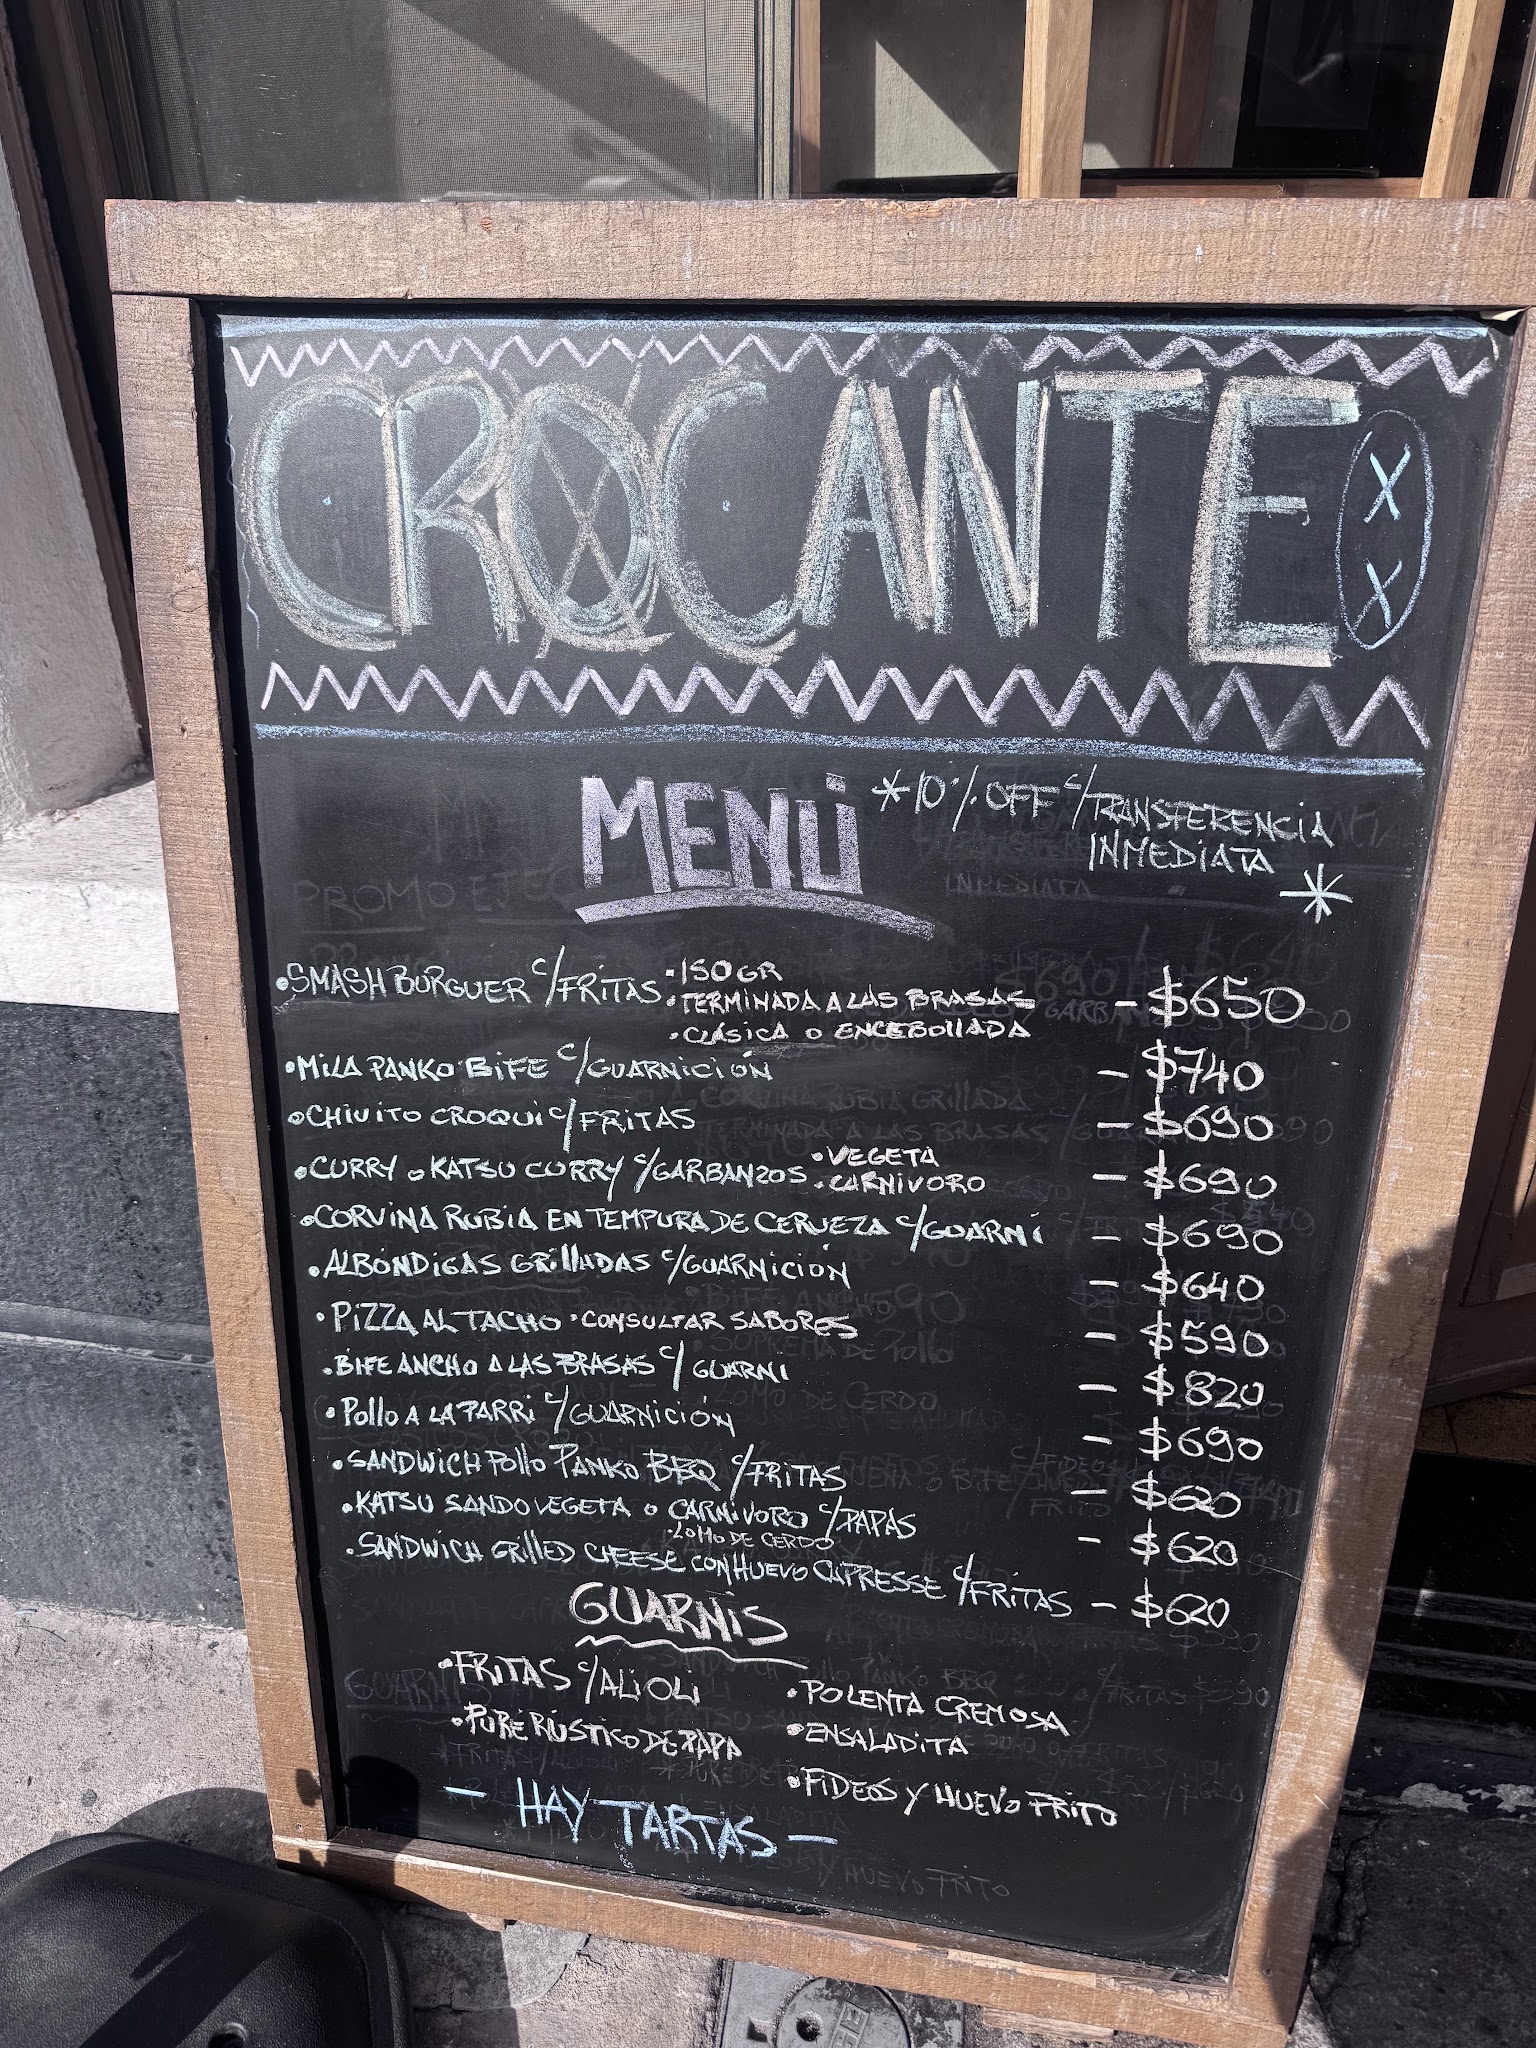 CROCANTE
MENÚ
*10% OFF C/TRANSFERENCIA
INMEDIATA *
•SMASH BURGUER C/FRITAS •150GR
•TERMINADA A LAS BRASAS - $650
•CLÁSICA O ENCEBOLLADA
•MILA PANKO BIFE C/GUARNICIÓN - $740
•CHIVITO CROQUI C/FRITAS - $690
•CURRY O KATSU CURRY C/GARBANZOS •VEGETA
•CARNIVORO - $690
•CORVINA RUBIA EN TEMPURA DE CERVEZA C/GUARNI - $690
•ALBÓNDIGAS GRILLADAS C/GUARNICIÓN - $640
•PIZZA AL TACHO •CONSULTAR SABORES - $590
•BIFE ANCHO A LAS BRASAS C/GUARNI - $820
•POLLO A LA PARRI C/GUARNICIÓN - $690
•SANDWICH POLLO PANKO BBQ C/FRITAS - $620
•KATSU SANDO VEGETA O CARNIVORO C/PAPAS - $620
•LOMO DE CERDO
•SANDWICH GRILLED CHEESE CON HUEVO CAPRESSE C/FRITAS - $620
GUARNIS
•FRITAS C/ALIOLI
•PURÉ RÚSTICO DE PAPA
•POLENTA CREMOSA
•ENSALADITA
•FIDEOS Y HUEVO FRITO
- HAY TARTAS -